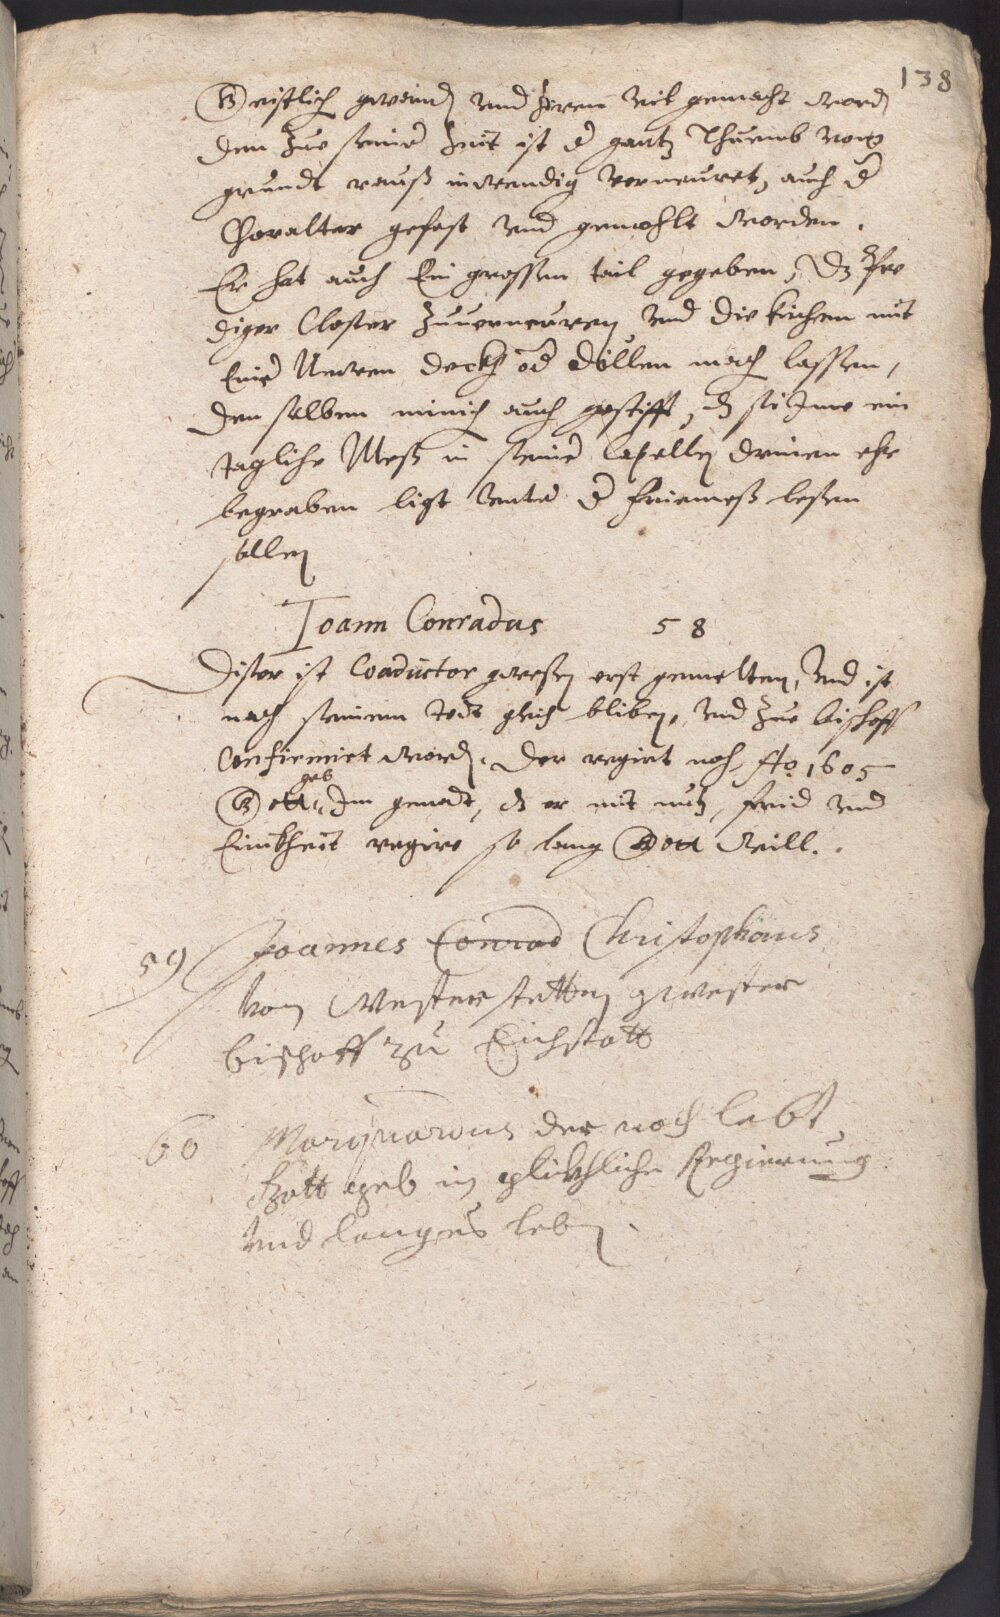 138
Geistlich gweind und Herren Rck gemacht word
den Zue seiner Zeit ist d gantz Thuemb von
grundt rauß inwendig verneuret, auch d
Choraltar gefast und gemahlt worden.
Er hat auch Ein grossen tail gegeben, dz Pre
diger Closter Zuuerneuren und die kirchen mit
Einer Neuen deckh od düllen mach lassen,
den selben minich auch gestifft, dz sie Ime ein
tagliche Meß in seiner Capellen drinen ehr
begraben ligt unter d Friemeß lesen
sollen
Ioann Conradus 58
Diser ist Coadiutor gwesen erst gemelten, und ist
nach seinem Todt gleich bliben, und Zue bischoff
Confirmiert word. Der regirt noch Ao 1605
geb
Gott Im genadt, dz er mit nutz, frid und
Einikheit regire so lang Gott will.
59 Joannes Conrad Christophorus
von Westerstetten gwester
bischoff zu Eichstatt
60 Marquardus der noch lebt
Gott geb in glückhliche Regierung
und langes leben.